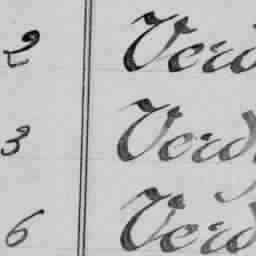 2 Verd
3 Verd
6 Verd